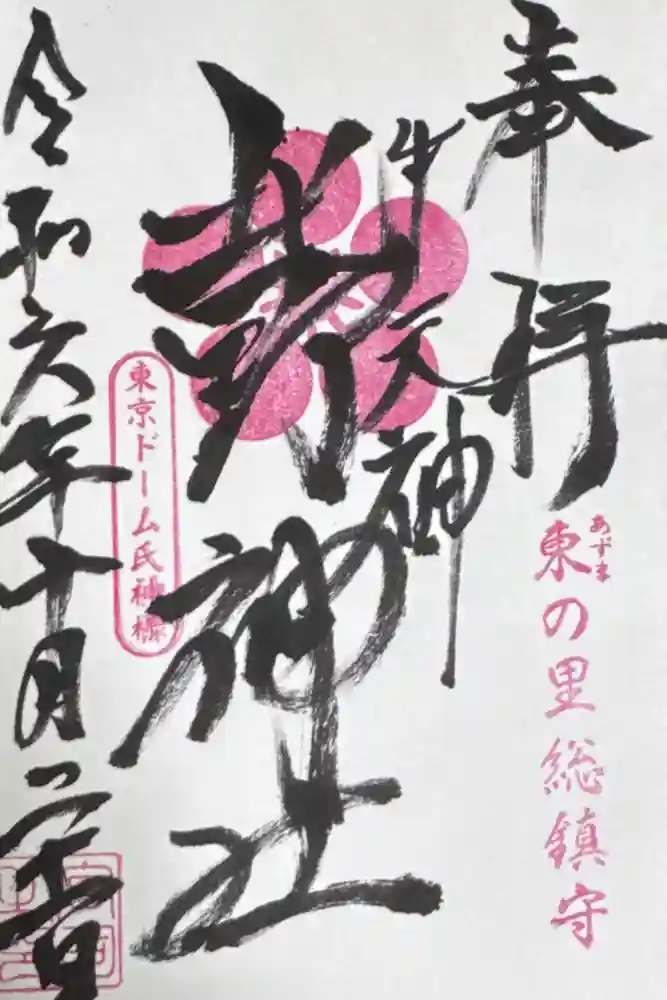 奉拝
東の里総鎮守
あずま
牛天神
北野神社
東京ドーム氏神様
令和六年十月